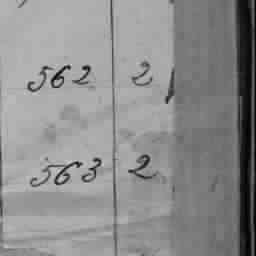 562 2
563 2